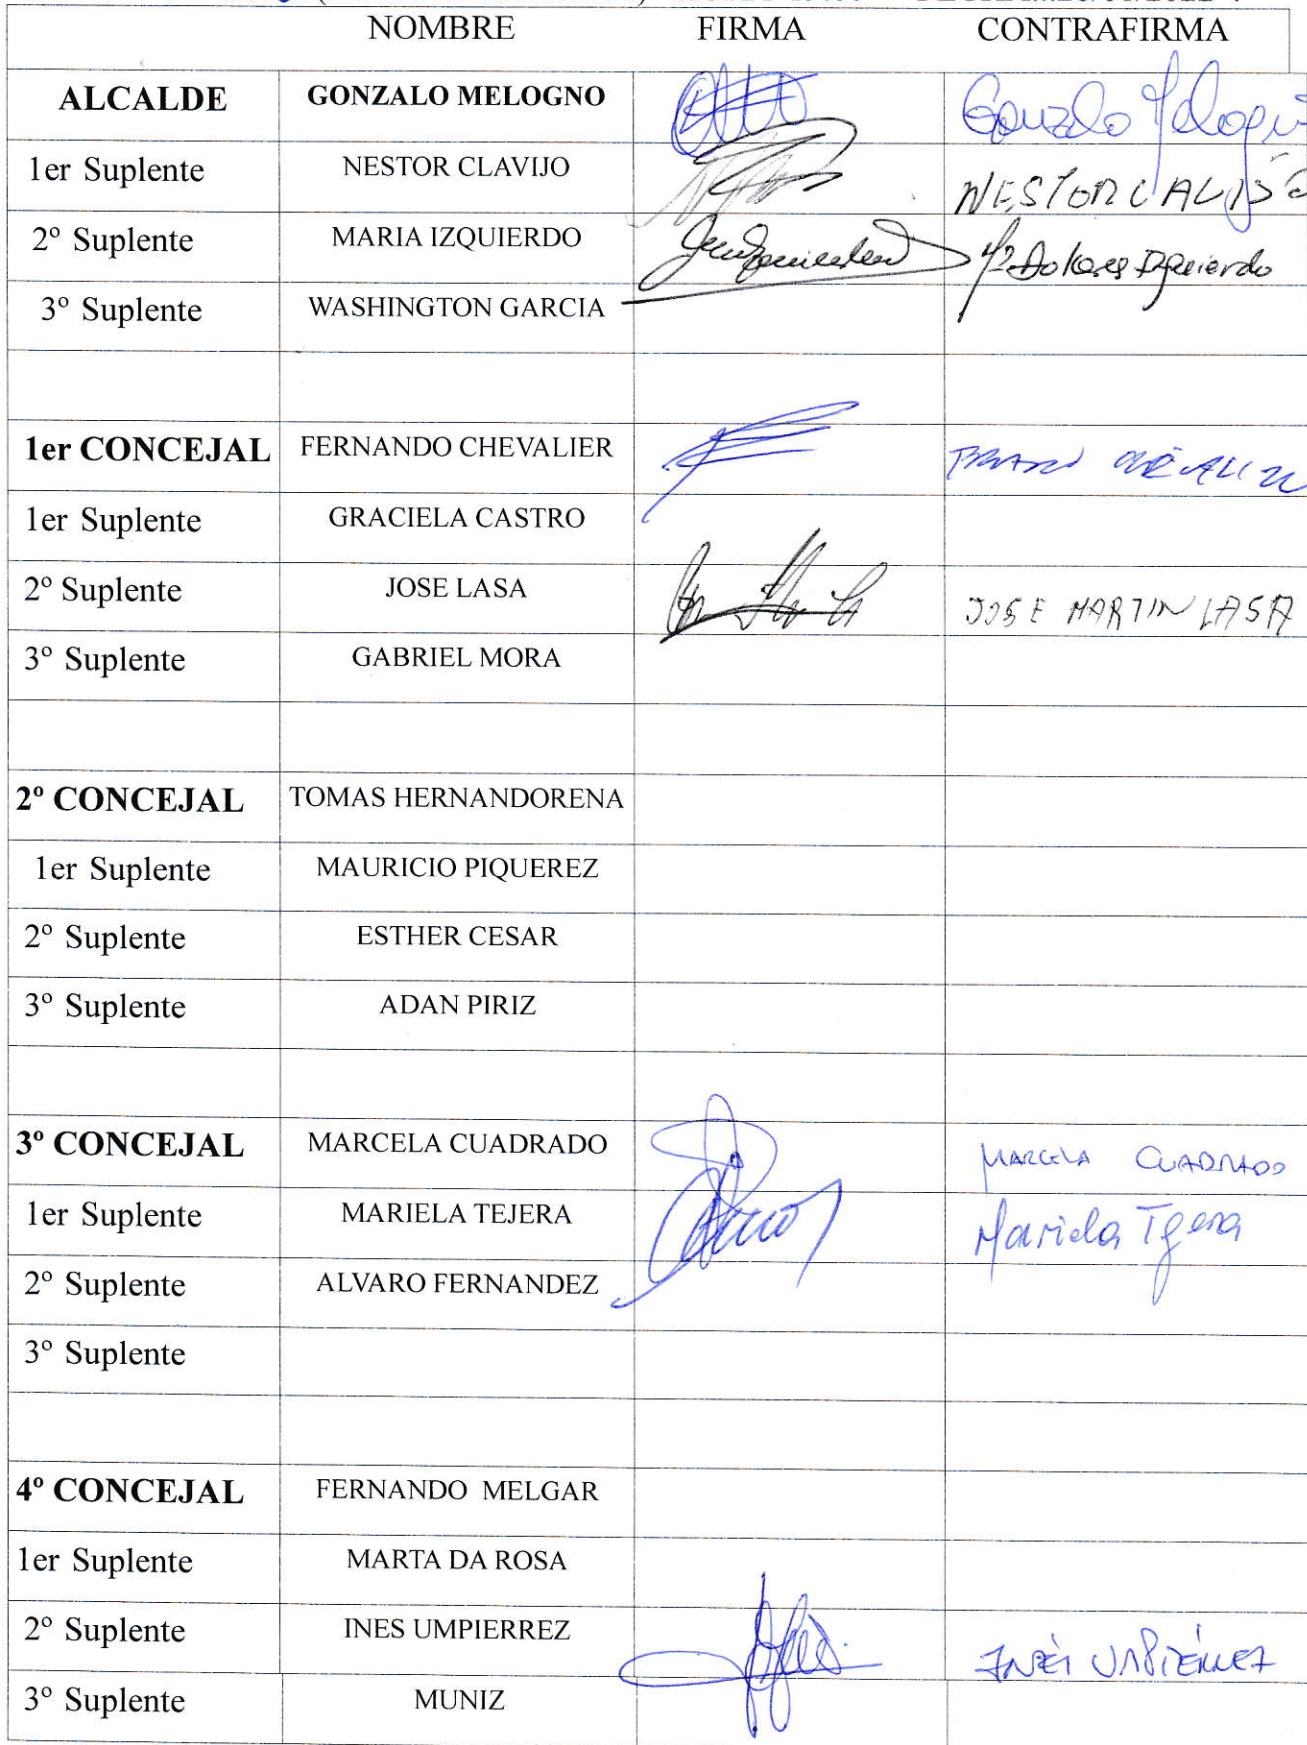 NOMBRE FIRMA CONTRAFIRMA
ALCALDE GONZALO MELOGNO Gonzalo Melogno
1er Suplente NESTOR CLAVIJO NESTOR CLAVIJO
2º Suplente MARIA IZQUIERDO Mª Dolores Izquierdo
3º Suplente WASHINGTON GARCIA
1er CONCEJAL FERNANDO CHEVALIER
1er Suplente GRACIELA CASTRO
2º Suplente JOSE LASA JOSE MARTIN LASA
3º Suplente GABRIEL MORA
2º CONCEJAL TOMAS HERNANDORENA
1er Suplente MAURICIO PIQUEREZ
2º Suplente ESTHER CESAR
3º Suplente ADAN PIRIZ
3º CONCEJAL MARCELA CUADRADO MARCELA CUADRADO
1er Suplente MARIELA TEJERA Mariela Tejera
2º Suplente ALVARO FERNANDEZ
3º Suplente
4º CONCEJAL FERNANDO MELGAR
1er Suplente MARTA DA ROSA
2º Suplente INES UMPIERREZ INÉS UMPIÉRREZ
3º Suplente MUNIZ